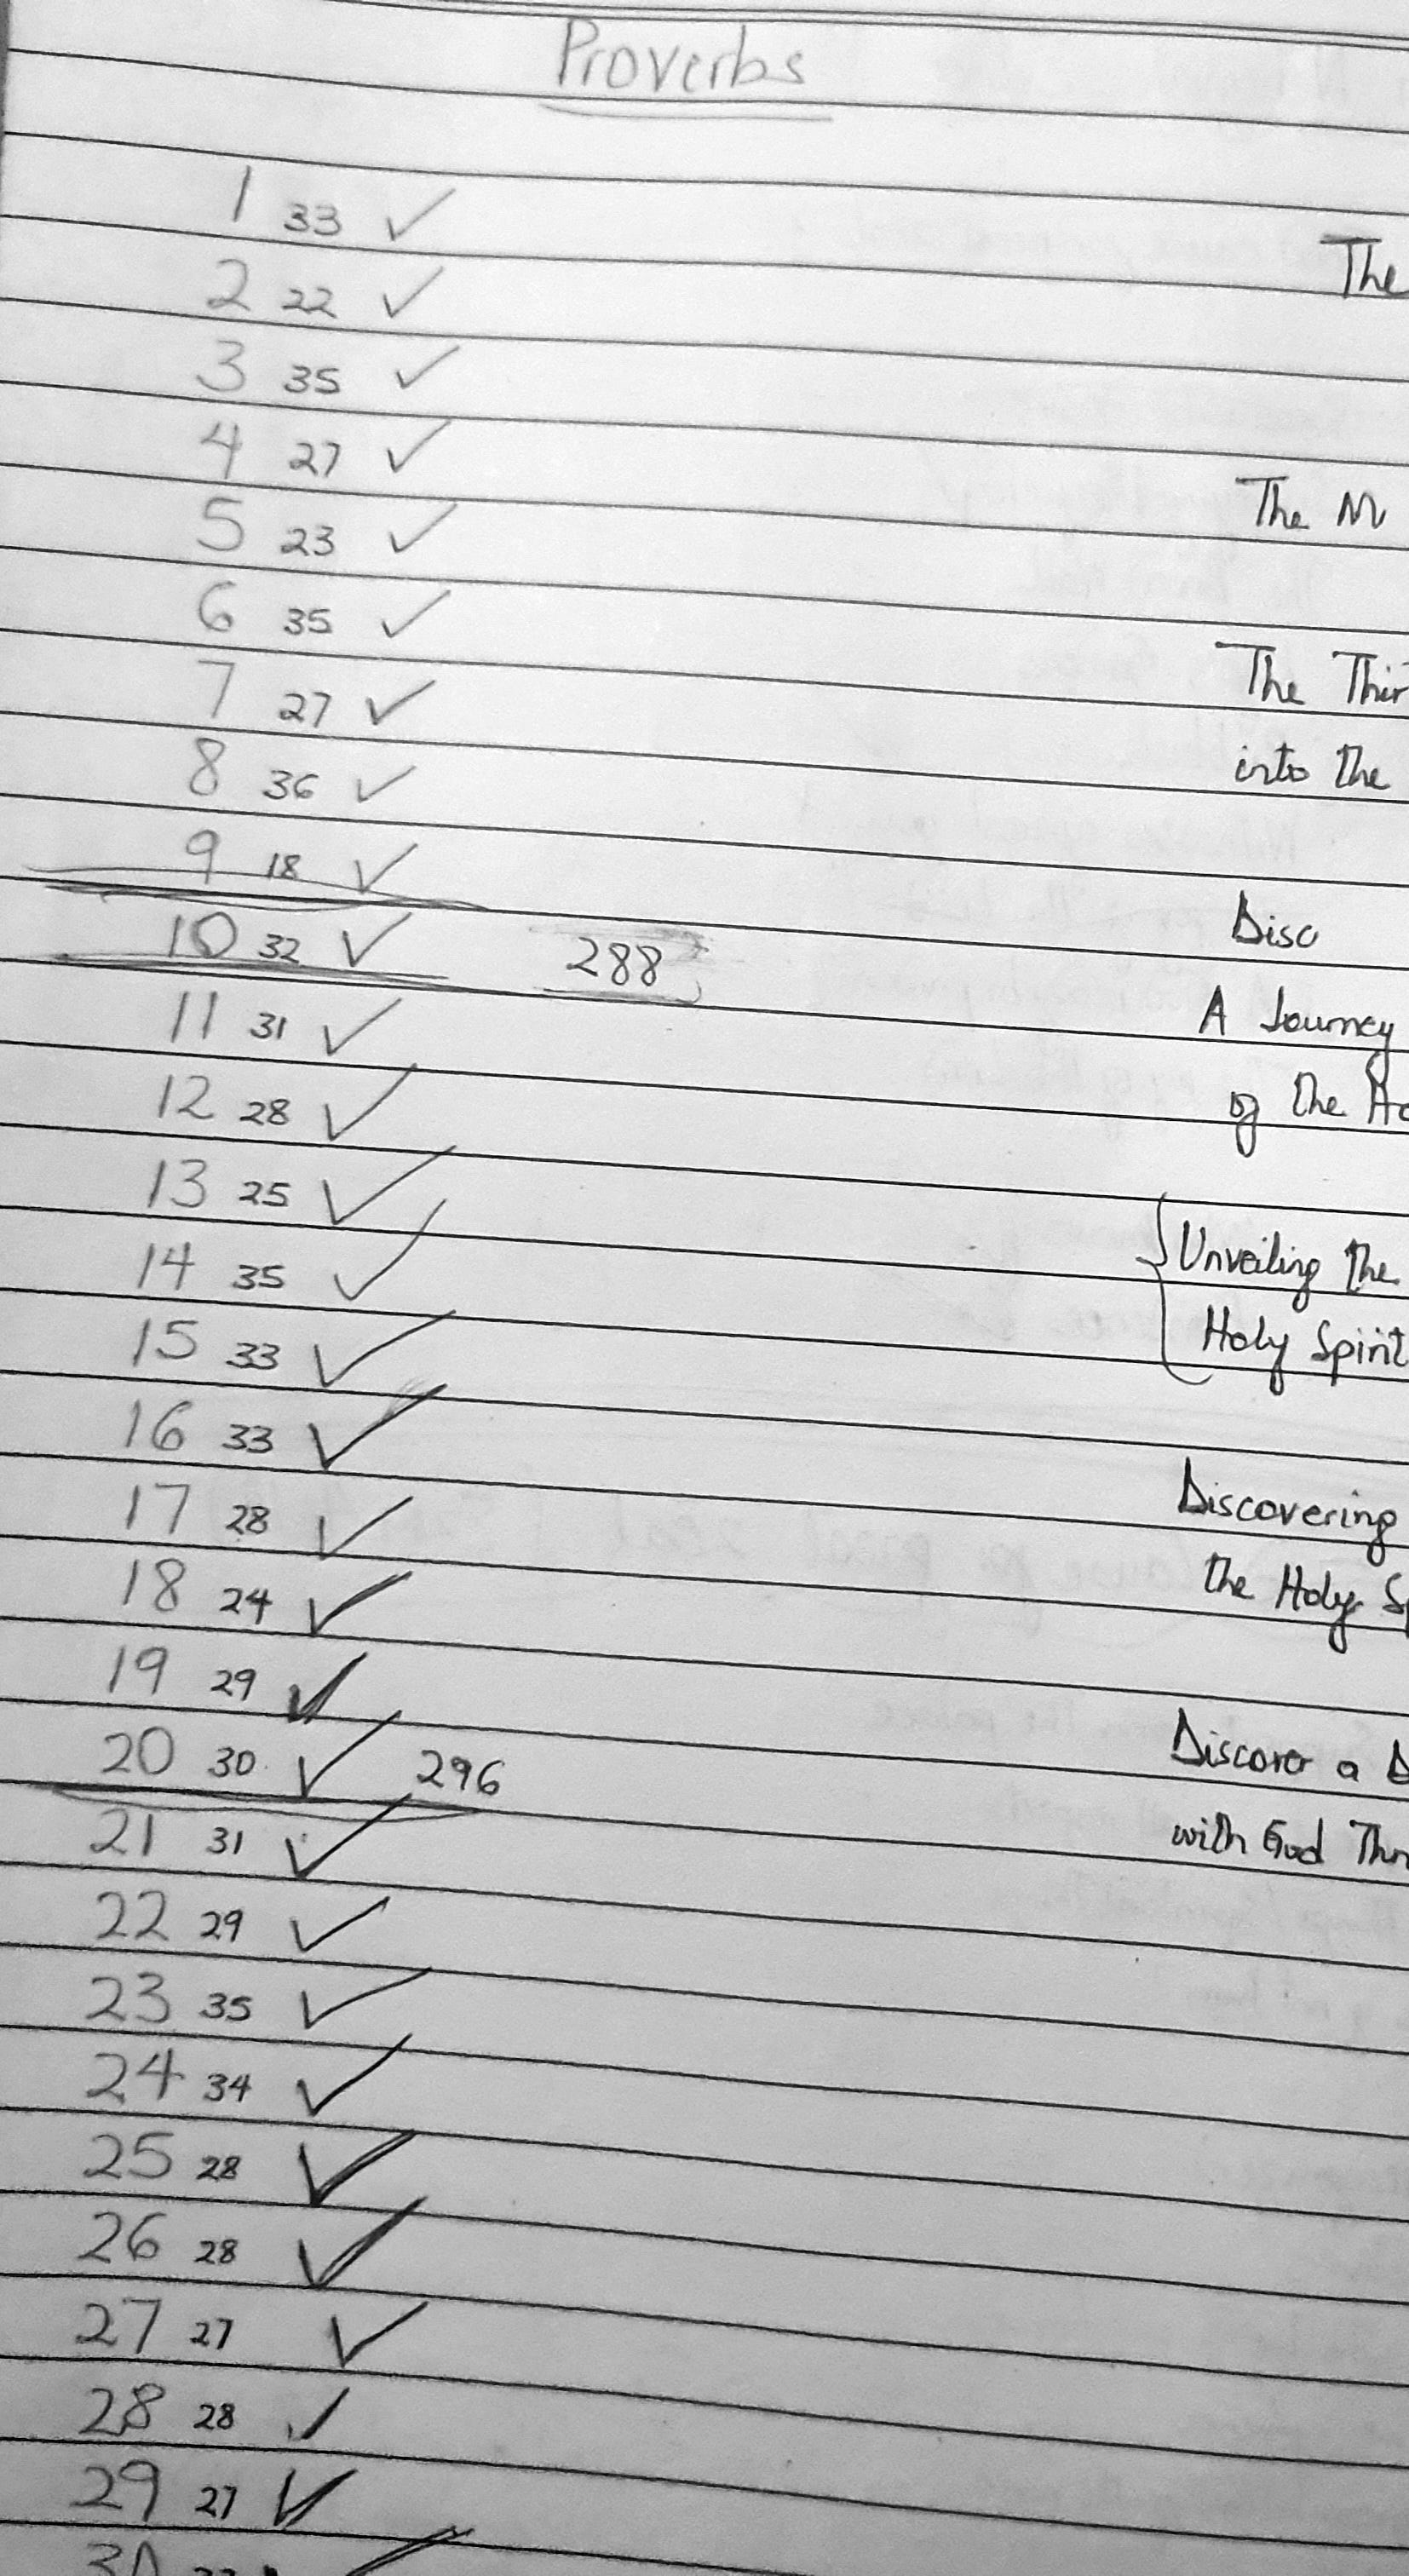 Proverbs
1 33 ✓
2 22 ✓
3 35 ✓
4 27 ✓
5 23 ✓
6 35 ✓
7 27 ✓
8 36 ✓
9 18 ✓
10 32 ✓ 288
11 31 ✓
12 28 ✓
13 25 ✓
14 35 ✓
15 33 ✓
16 33 ✓
17 28 ✓
18 24 ✓
19 29 ✓
20 30 ✓ 296
21 31 ✓
22 29 ✓
23 35 ✓
24 34 ✓
25 28 ✓
26 28 ✓
27 27 ✓
28 28 ✓
29 27 ✓
30
The
The
The
into the
A Journey
of the
Unveiling the
Holy Spirit
Discovering
the Holy
Discover a
with God